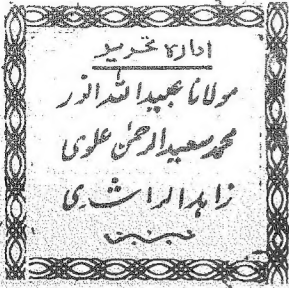 ادارۂ تحریر
مولانا عبیداللہ انور
محمد سعید الرحمٰن علوی
زاہد الراشدی